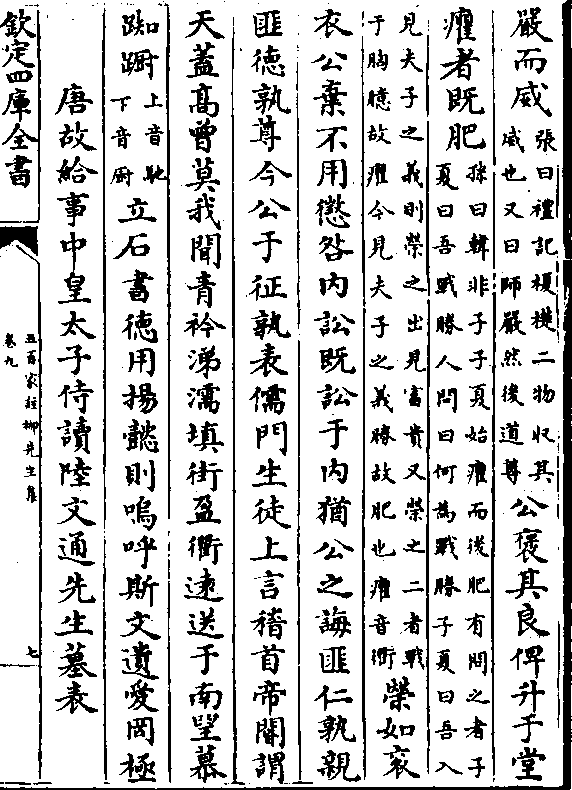 嚴而威張曰禮記榎檚二物收其
威也又曰師嚴然後道尊公褒其良俾升于堂
癯者既肥孫曰韓非子子夏始癯而後肥有問之者子
夏曰吾戰勝人問曰何為戰勝子夏曰吾入
見夫子之義則榮之出見富貴又榮之二者戰
于胸臆故癯今見夫子之義勝故肥也癯音衢榮如衮
衣公棄不用懲咎内訟既訟于内猶公之誨匪仁孰親
匪德孰尊今公于征孰表儒門生徒上言稽首帝閽謂
天蓋髙曾莫我聞青衿涕濡填街盈衢逺送于南望慕
踟蹰上音馳
下音厨立石書德用揚懿則嗚呼斯文遺愛罔極
唐故給事中皇太子侍讀陸文通先生墓表
欽定四庫全書
五百家註柳先生集
卷九
七